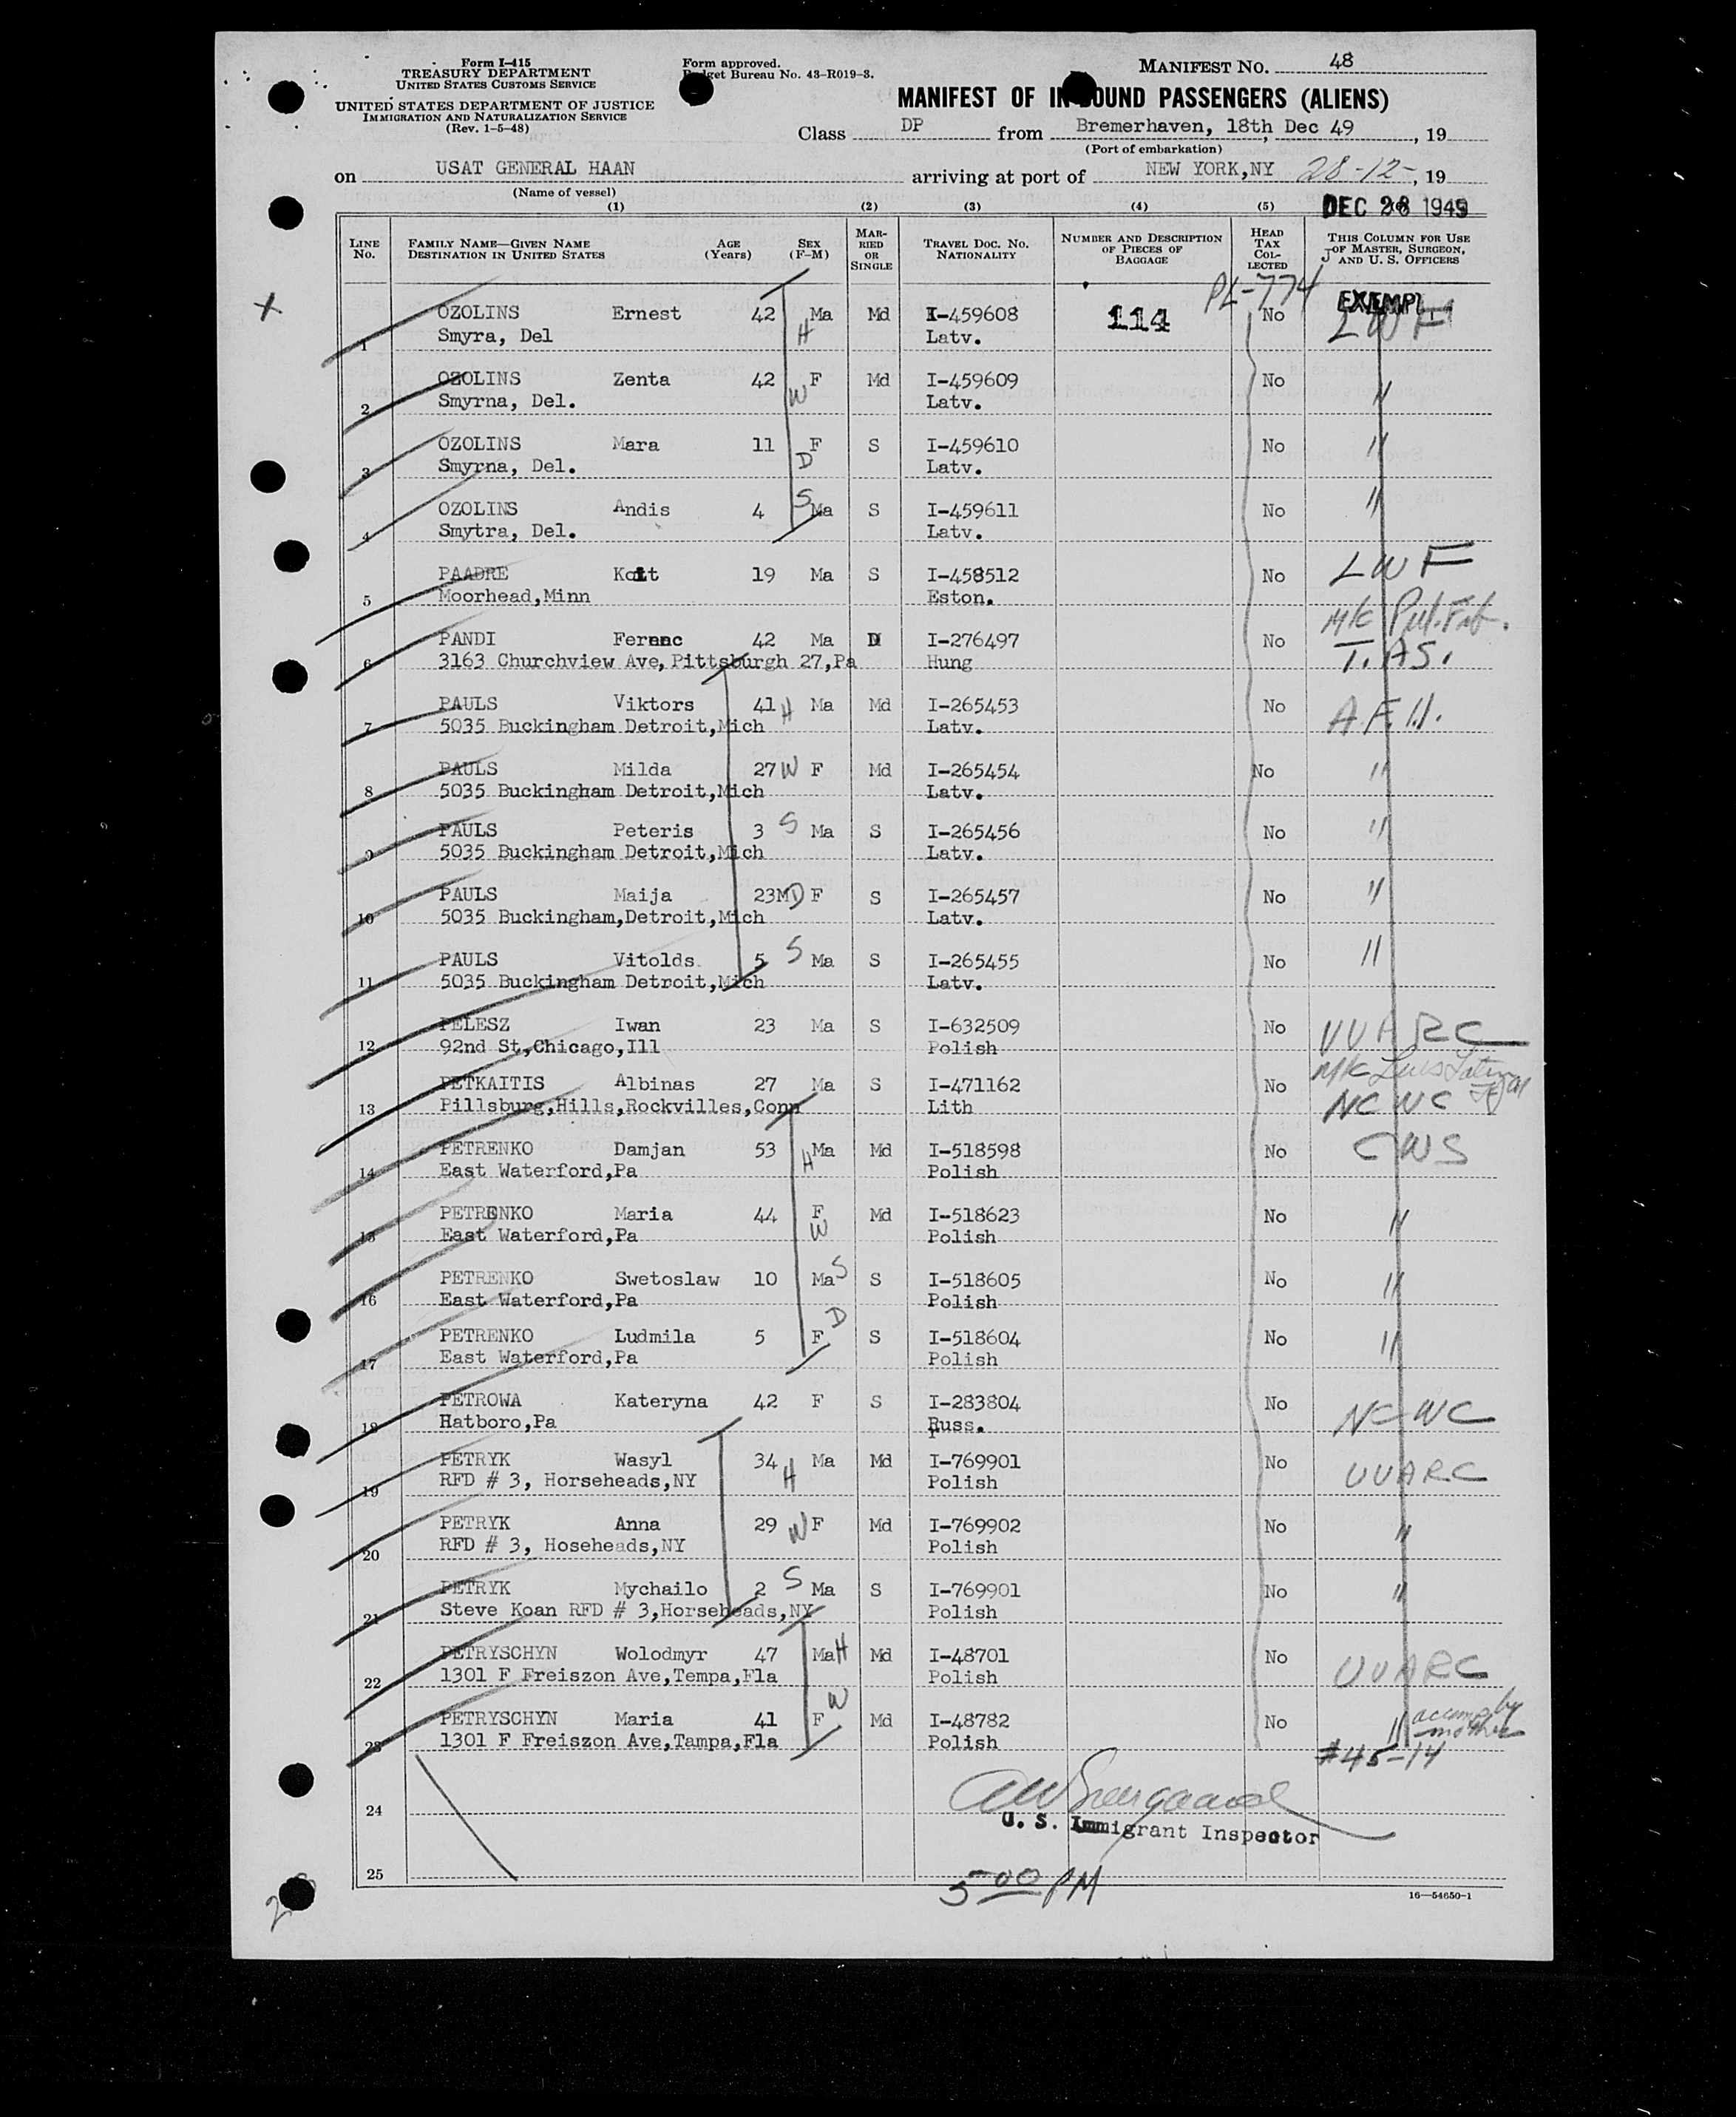 Form I-415
TREASURY DEPARTMENT
UNITED STATES CUSTOMS SERVICE
UNITED STATES DEPARTMENT OF JUSTICE
IMMIGRATION AND NATURALIZATION SERVICE
(Rev. 1-5-48)
Form approved.
Budget Bureau No. 43-R019-3.
MANIFEST NO. 48
MANIFEST OF IN-BOUND PASSENGERS (ALIENS)
Class DP from Bremerhaven, 18th Dec 49, 19
(Port of embarkation)
on USAT GENERAL HAAN arriving at port of NEW YORK,NY 28-12-, 19
(Name of vessel)
DEC 28 1949
(1) (2) (3) (4) (5)
LINE NO. FAMILY NAME—GIVEN NAME DESTINATION IN UNITED STATES AGE (Years) SEX (F-M) MARRIED OR SINGLE TRAVEL DOC. NO. NATIONALITY NUMBER AND DESCRIPTION OF PIECES OF BAGGAGE HEAD TAX COLLECTED THIS COLUMN FOR USE OF MASTER, SURGEON, AND U. S. OFFICERS
PL-774 EXEMPT
X
1 OZOLINS Ernest 42 H Ma Md I-459608 114 No LWF
Smyra, Del Latv.
2 OZOLINS Zenta 42 W F Md I-459609 No "
Smyrna, Del. Latv.
3 OZOLINS Mara 11 F D S I-459610 No "
Smyrna, Del. Latv.
4 OZOLINS Andis 4 S Ma S I-459611 No "
Smytra, Del. Latv.
5 PAADRE Koit 19 Ma S I-458512 No LWF
Moorhead,Minn Eston.
6 PANDI Ferenc 42 Ma D I-276497 No M/C
3163 Churchview Ave, Pittsburgh 27,Pa Hung T.AS.
7 PAULS Viktors 41 H Ma Md I-265453 No
5035 Buckingham Detroit,Mich Latv.
8 PAULS Milda 27 W F Md I-265454 No "
5035 Buckingham Detroit,Mich Latv.
9 PAULS Peteris 3 S Ma S I-265456 No "
5035 Buckingham Detroit,Mich Latv.
10 PAULS Maija 23M D F S I-265457 No "
5035 Buckingham,Detroit,Mich Latv.
11 PAULS Vitolds 5 S Ma S I-265455 No "
5035 Buckingham Detroit,Mich Latv.
12 PELESZ Iwan 23 Ma S I-632509 No UUARC
92nd St,Chicago,Ill Polish
13 PETKAITIS Albinas 27 Ma S I-471162 No M/C
Pillsburg,Hills,Rockvilles,Conn Lith NCWC
14 PETRENKO Damjan 53 H Ma Md I-518598 No CWS
East Waterford,Pa Polish
15 PETRENKO Maria 44 F W Md I-518623 No "
East Waterford,Pa Polish
16 PETRENKO Swetoslaw 10 Ma S S I-518605 No "
East Waterford,Pa Polish
17 PETRENKO Ludmila 5 F D S I-518604 No "
East Waterford,Pa Polish
18 PETROWA Kateryna 42 F S I-283804 No NCWC
Hatboro,Pa Russ.
19 PETRYK Wasyl 34 H Ma Md I-769901 No UUARC
RFD # 3, Horseheads,NY Polish
20 PETRYK Anna 29 W F Md I-769902 No "
RFD # 3, Hoseheads,NY Polish
21 PETRYK Mychailo 2 S Ma S I-769901 No "
Steve Koan RFD # 3,Horseheads,NY Polish
22 PETRYSCHYN Wolodmyr 47 Ma H Md I-48701 No UUARC
1301 F Freiszon Ave,Tempa,Fla Polish
23 PETRYSCHYN Maria 41 F W Md I-48782 No " accomp by mother
1301 F Freiszon Ave,Tampa,Fla Polish #45-14
24
U. S. Immigrant Inspector
25
5 00 PM
16—54650-1